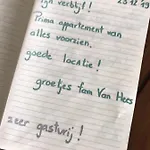 fijn verblijf!
23 12 19
Prima appartement van
alles voorzien.
goede locatie!
groetjes fam Van Hees
zeer gasturij!